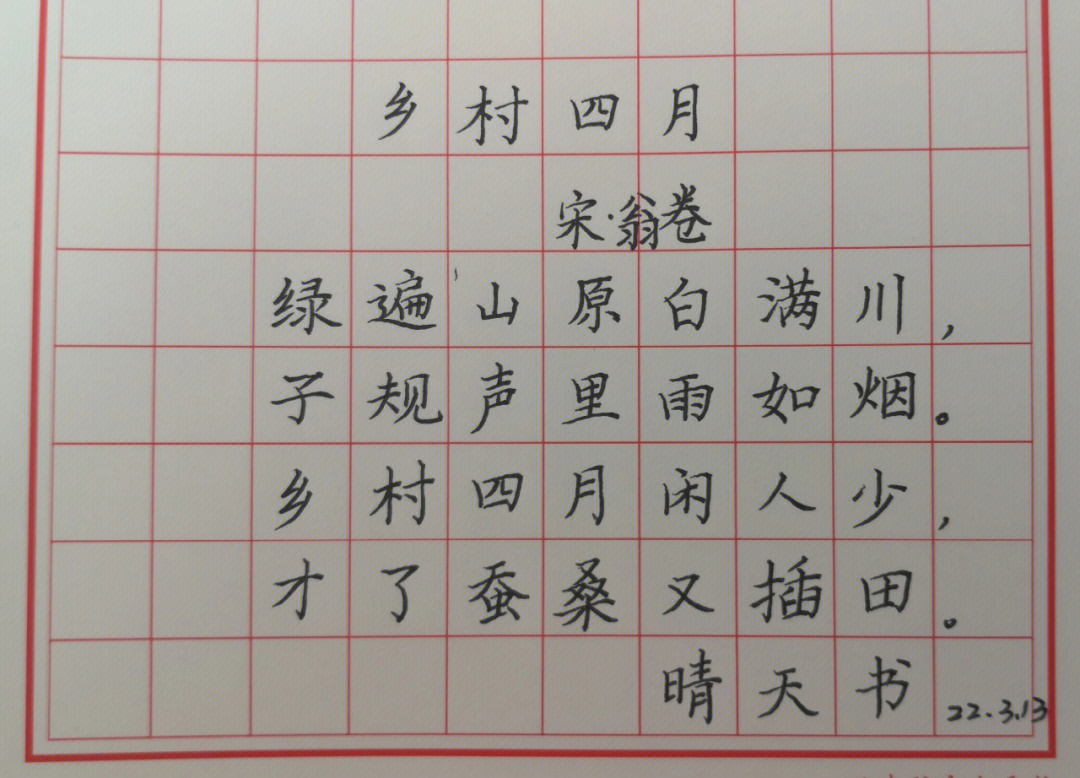 乡村四月
宋·翁卷
绿遍山原白满川，
子规声里雨如烟。
乡村四月闲人少，
才了蚕桑又插田。
晴天书 22.3.13